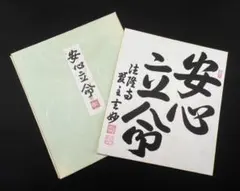 安心立命
安心
立命
法隆寺